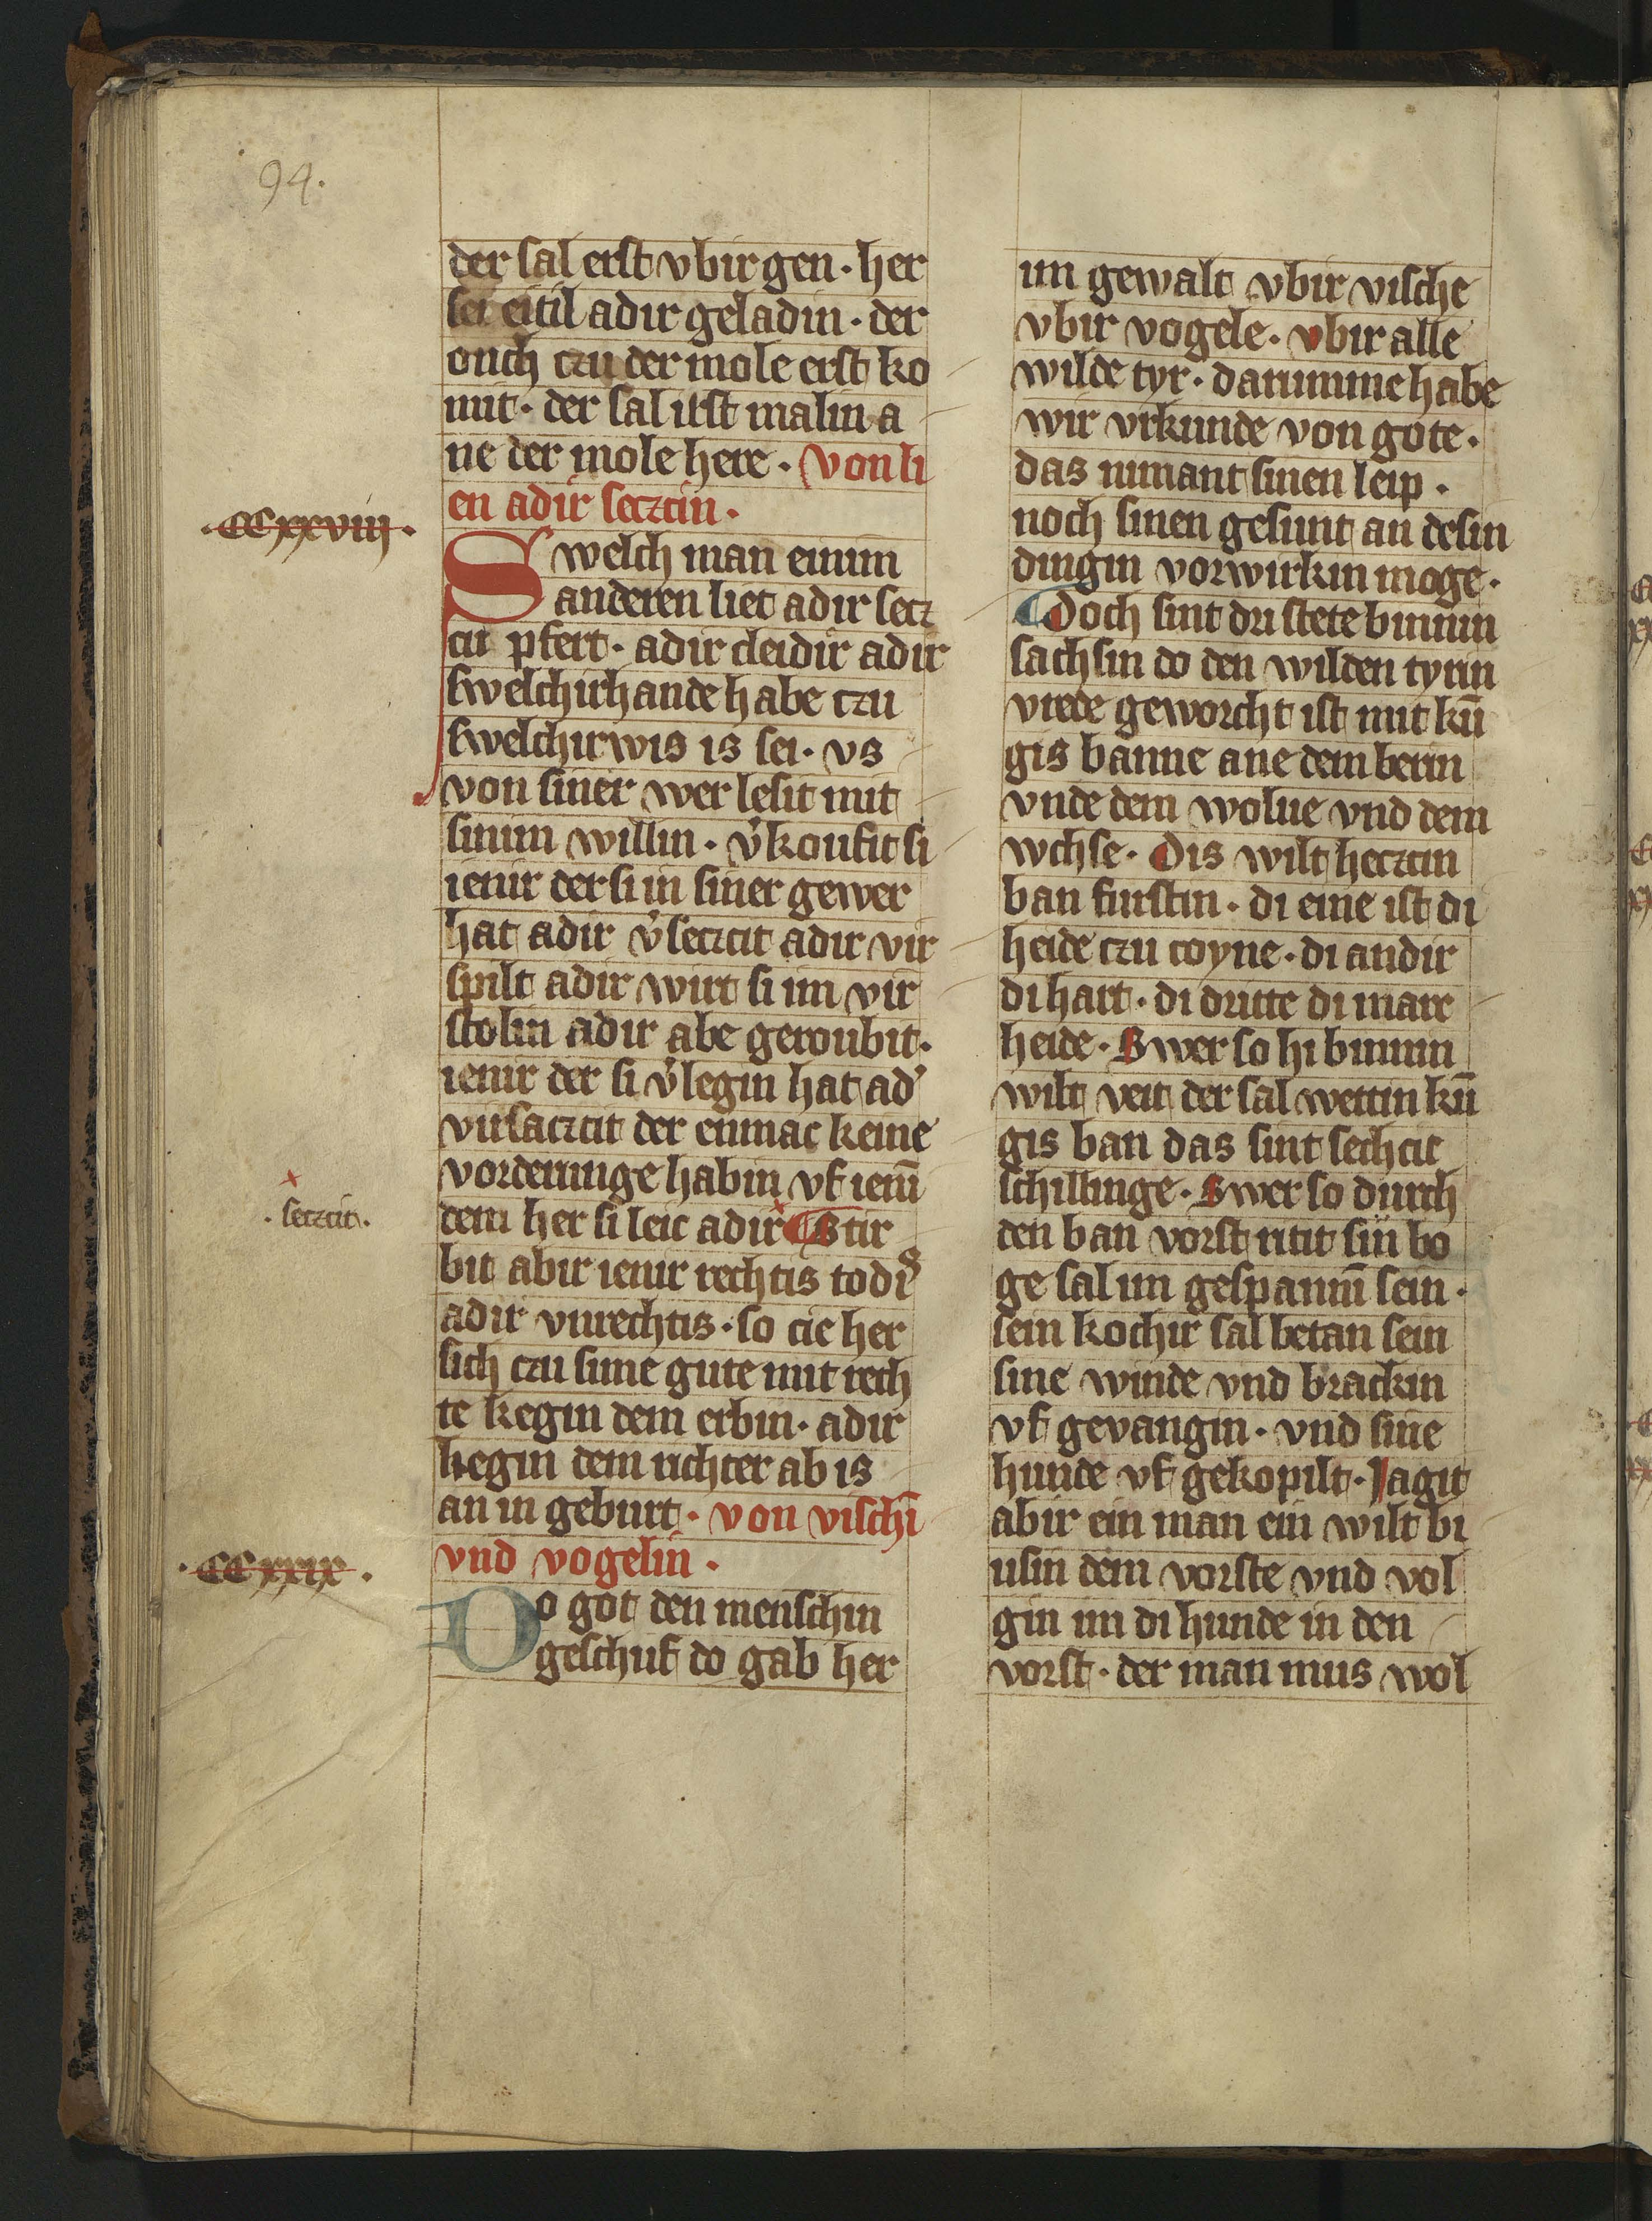 94.
der sal erst vbir gen · her
sei eitil adir geladin · der
ouch czu der mole erst ko
mit · der sal irst malin a
ne der mole here · Von li
en adir seczcin ·
· CCxxviij ·
Swelch man einim
anderen liet adir secz
cit pfert · adir cleidir adir
swelchirhande habe czu
swelchir wis is sei · vs
von siner wer lesit mit
sinim willin · v̓koufit si
ienir der si in siner gewer
hat adir v̓seczcit adir vir
spilt adir wirt si im vir
stolin adir abe geroubit ·
ienir der si v̓legin hat ad̓
virsaczcit der enmac keine
vorderunge habin vf iem̄
dem her si leic adir ¶ Stir
· seczcit ·
bit abir ienir rechtis todis
adir vnrechtis · so cie her
sich czu sime gute mit rech
te kegin dem erbin · adir
kegin dem richter ab is
an in geburt · von vischī
vnd vogelin ·
· CCxxix ·
Do got den menschin
geschuf do gab her
im gewalt vbir vische
vbir vogele · vbir alle
wilde tyr · darumme habe
wir vrkunde von gote ·
das nimant sinen leip ·
noch sinen gesunt an desin
dingin vorwirkin moge ·
¶ Doch sint dri stete binnin
sachsin do den wilden tyrin
vrede geworcht ist mit kū
gis banne ane dem berin
vnde dem wolue vnd dem
wchse · Dis wilt heczcin
ban furstin · di eine ist di
heide czu coyne · di andir
di hart · di dritte di mare
heide · Swer so hi binnin
wilt veit der sal wettin kū
gis ban das sint sechcic
schillinge · Swer so durch
den ban vorst ritit sin bo
ge sal im gespannī sein ·
sein kochir sal betan sein
sine winde vnd brackin
vf gevangin · vnd sine
hunde vf gekopilt · Jagit
abir ein man ein wilt bi
usin dem vorste vnd vol
gin im di hunde in den
vorst · der man mus wol